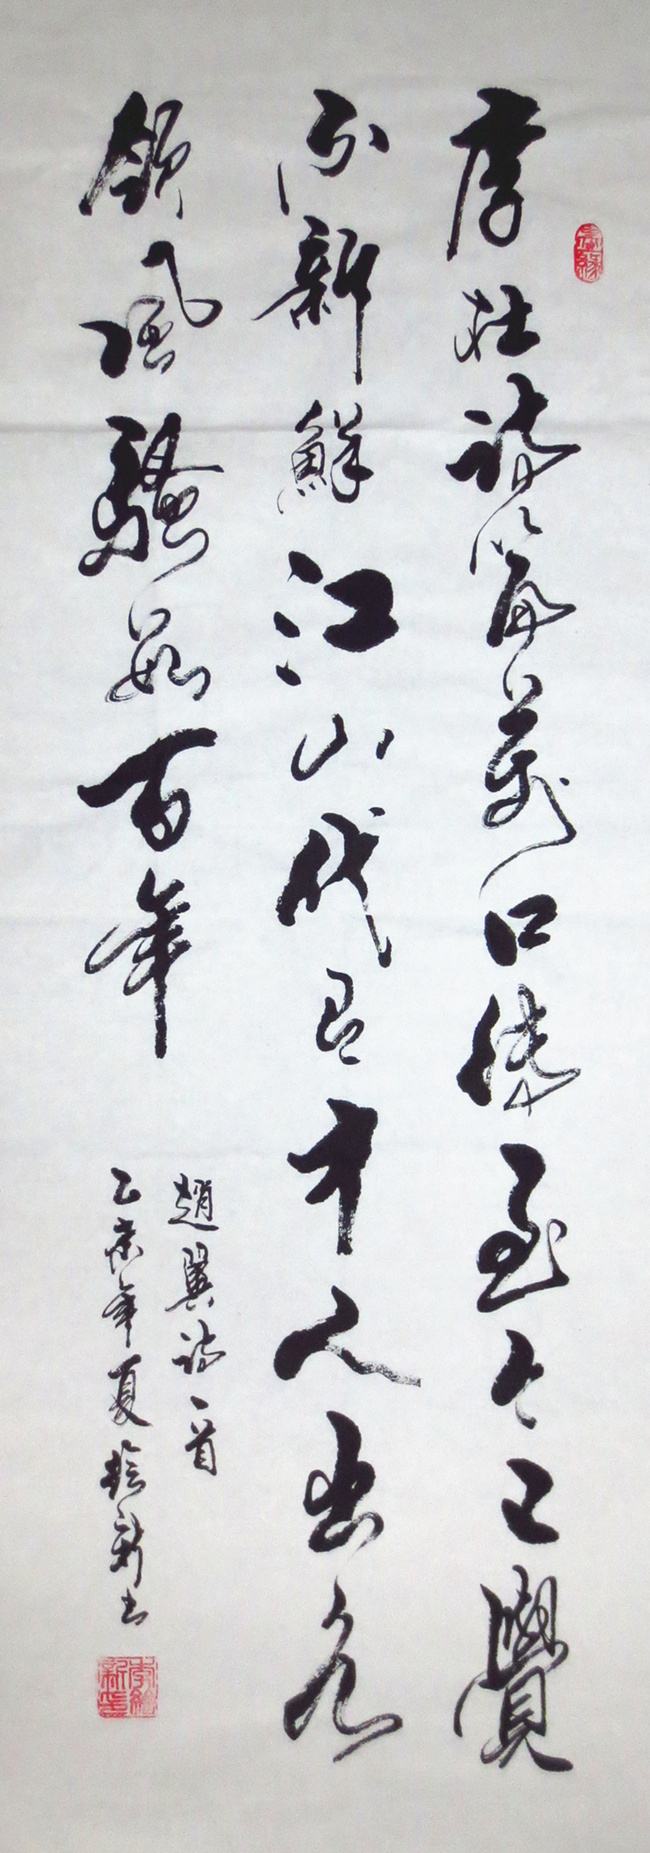 李杜詩篇萬口傳至今已覺
不新鮮江山代有才人出各
領風騷數百年
趙翼詩一首
乙亥年夏 新書